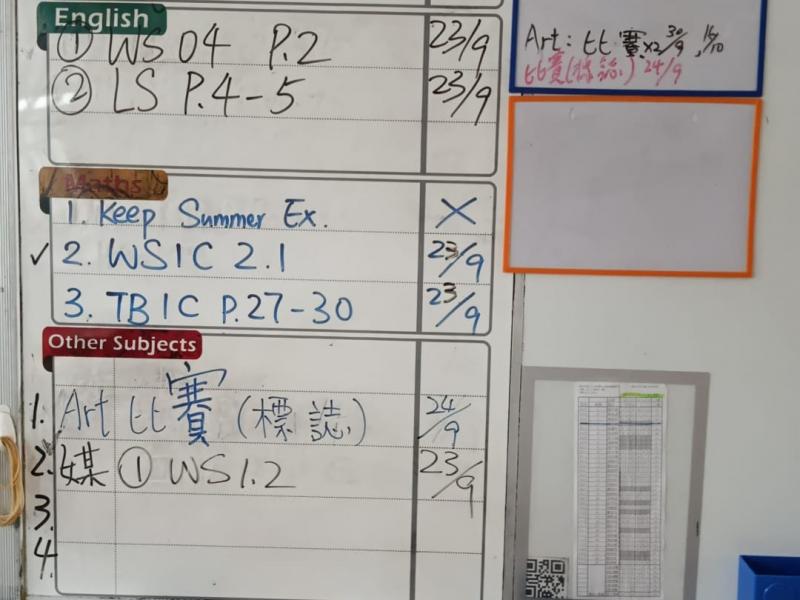 English
① WS 04 P.2 23/9
② LS P.4-5 23/9
Maths
1. Keep Summer Ex. X
✓ 2. WS1C 2.1 23/9
3. TB1C P.27-30 23/9
Other Subjects
1. Art 比賽 (標誌) 24/9
2. 媒 ① WS1.2 23/9
3.
4.
Art: 比賽x2 30/9, 15/10
比賽(標誌) 24/9